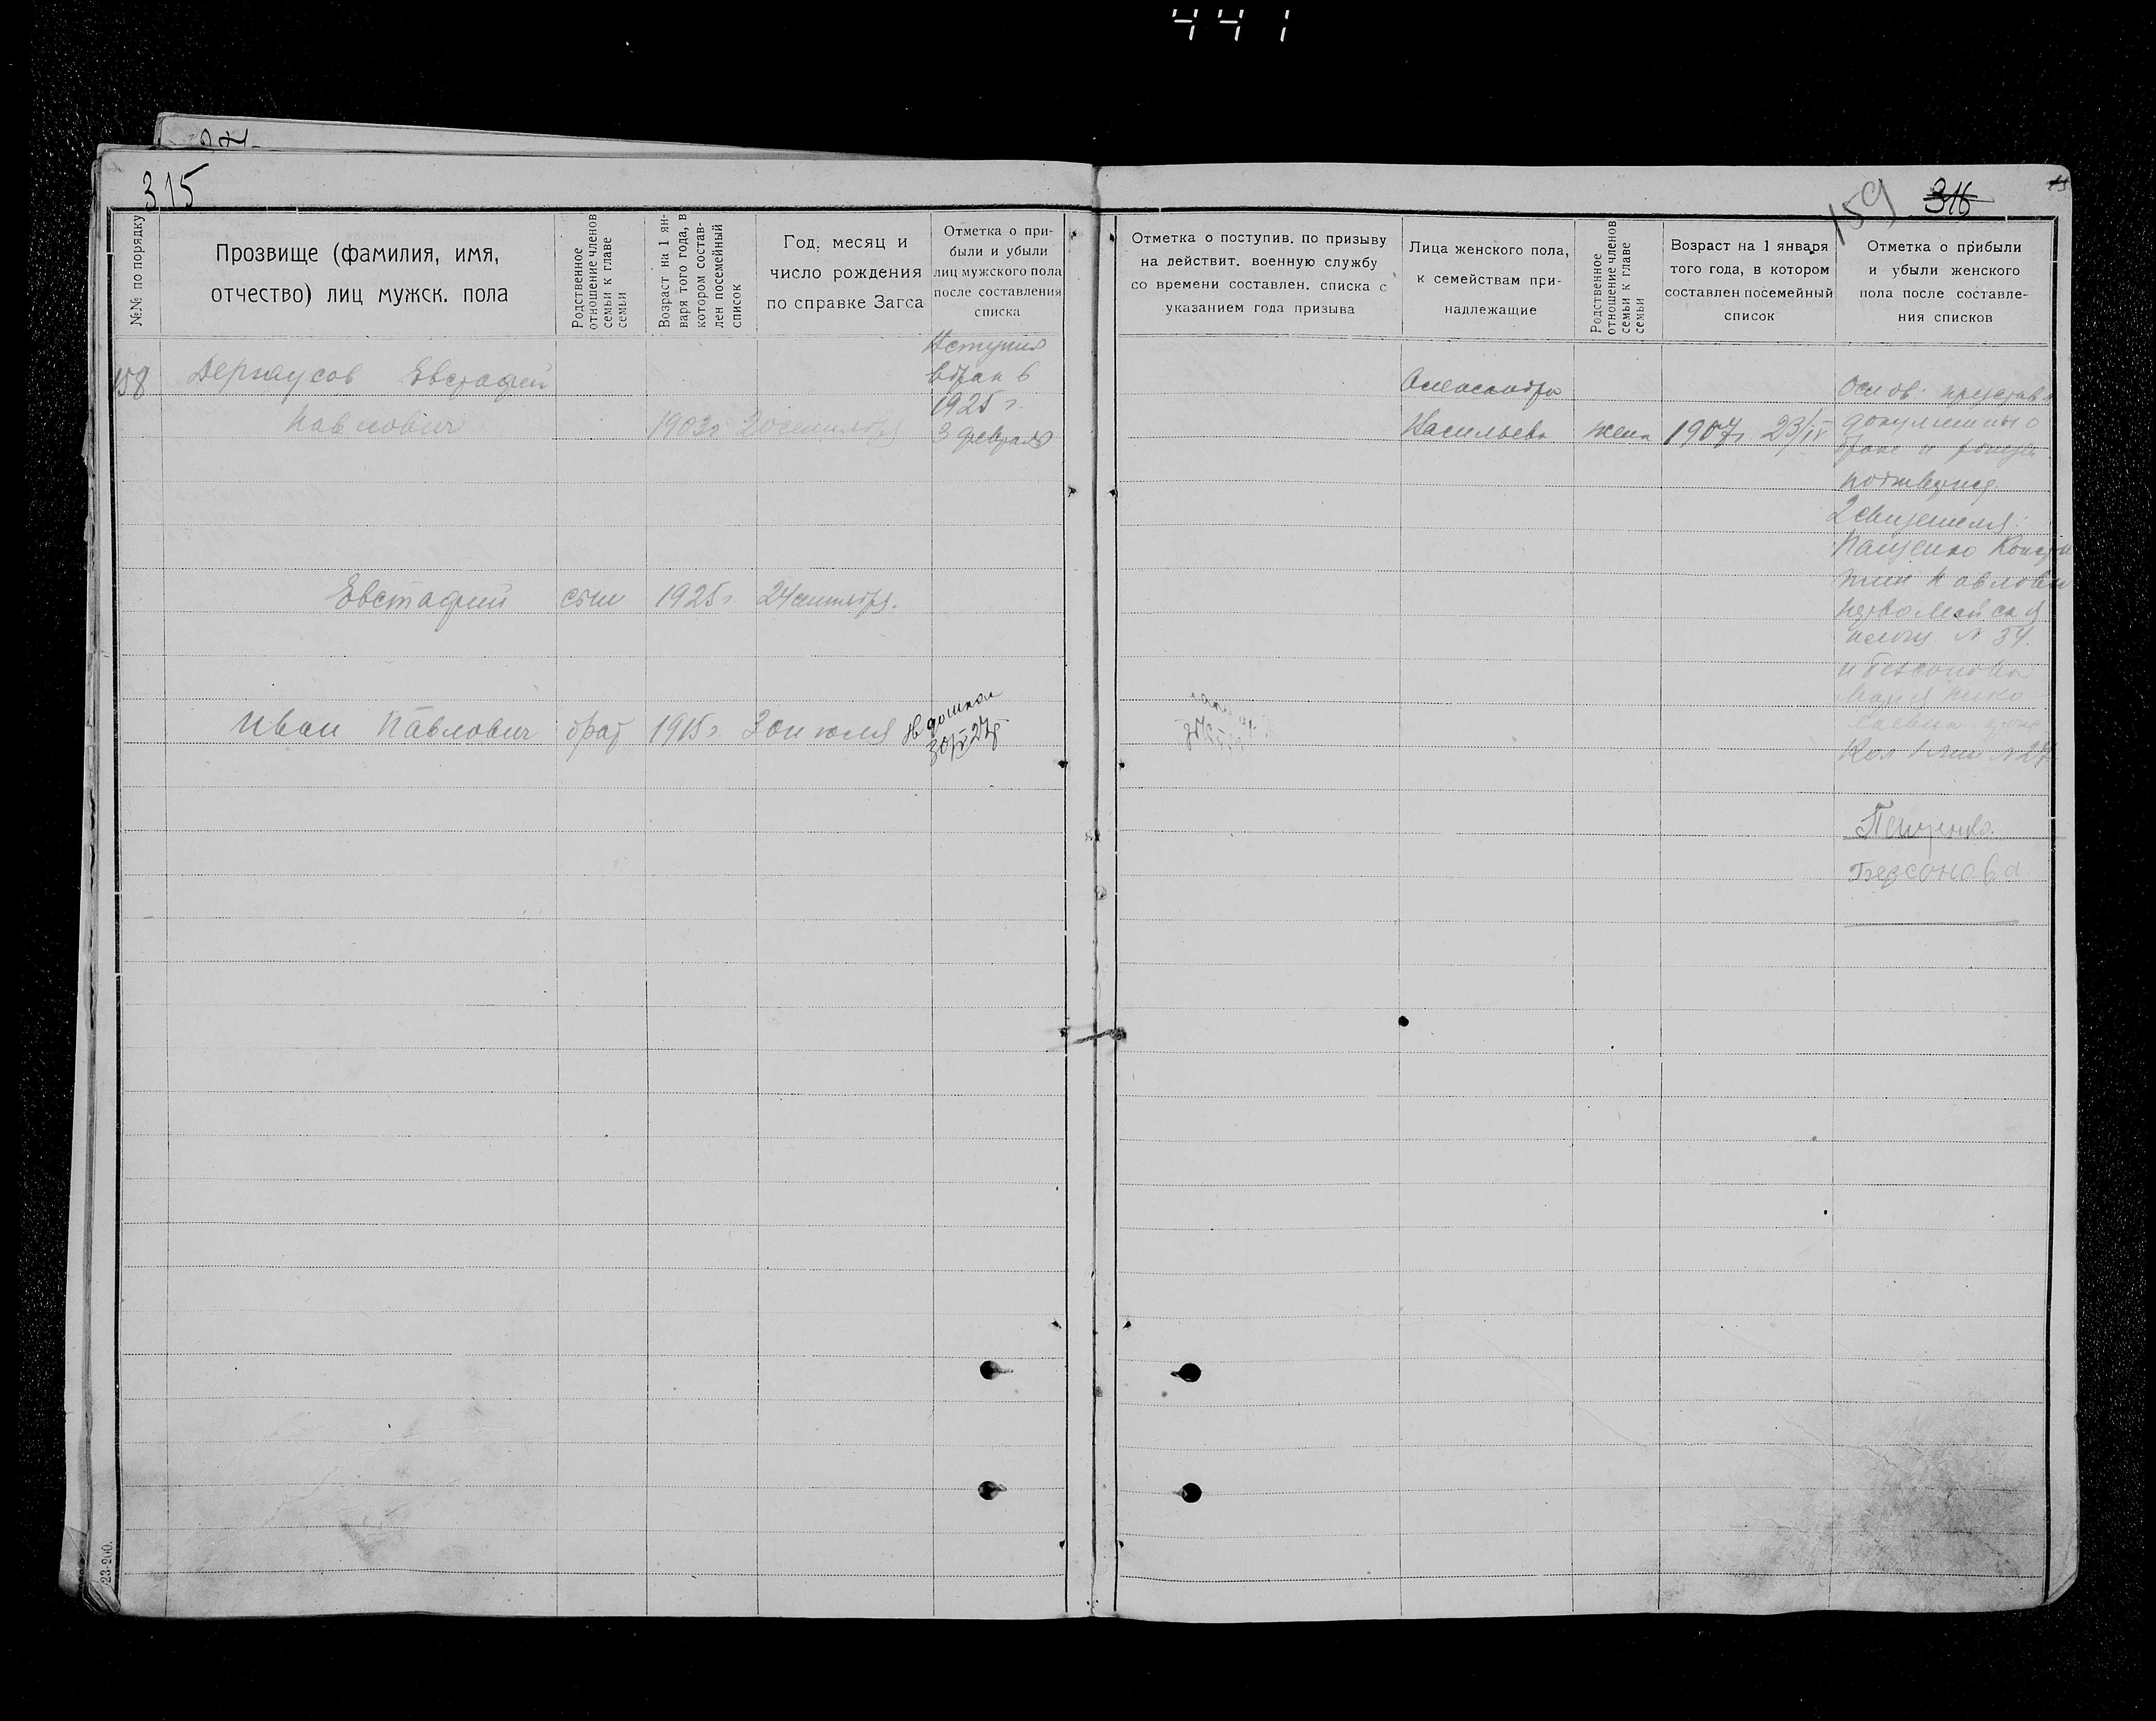 441
315
№№ по порядку
Прозвище (фамилия, имя,
отчество) лиц мужск. пола
Родственное
отношение членов
семьи к главе
семьи
Возраст на 1 ян-
варя того года, в
котором состав-
лен посемейный
список
Год, месяц и
число рождения
по справке Загса
Отметка о при-
были и убыли
лиц мужского пола
после составления
списка
158
Евстафий
Павлович
1903г 20 сентября
Вступил
в брак в
1925 г.
3 февраля
Евстафий сын 1925г 24 сентября.
Иван Павлович брат 1915г 30 июля
23-200.
159 316
Отметка о поступив. по призыву
на действит. военную службу
со времени составлен. списка с
указанием года призыва
Лица женского пола,
к семействам при-
надлежащие
Родственное
отношение членов
семьи к главе
семьи
Возраст на 1 января
того года, в котором
составлен посемейный
список
Отметка о прибыли
и убыли женского
пола после составле-
ния списков
Александра
Васильевна жена 1907г 23/IV
Основ.
документы о
браке и
2 свидетеля:
Пащенко
Павлович
Первомайская
№ 34.
и Безсонова
Мария Нико
лаевна
Пащенко.
Безсонова